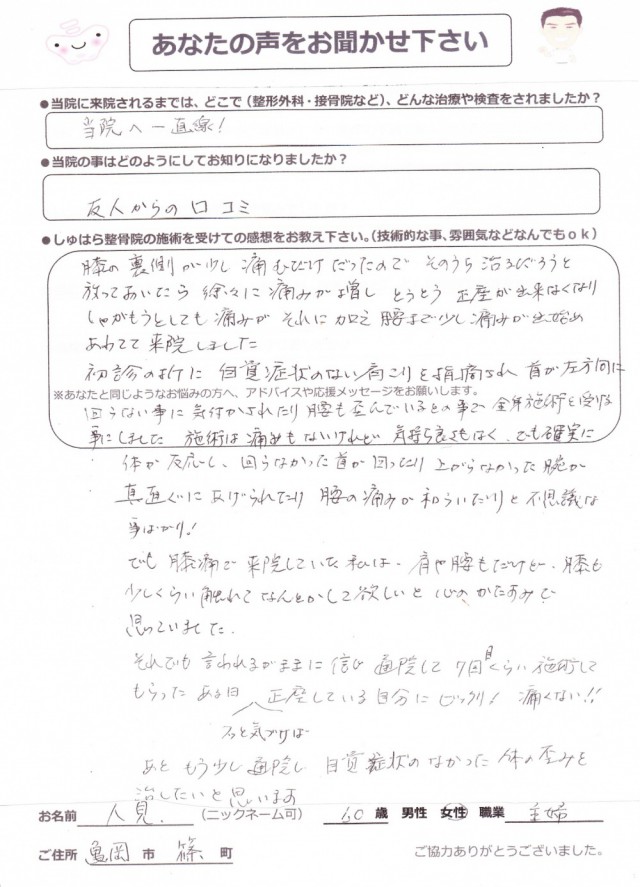 あなたの声をお聞かせ下さい
●当院に来院されるまでは、どこで(整形外科・接骨院など)、どんな治療や検査をされましたか?
当院へ一直線!
●当院の事はどのようにしてお知りになりましたか?
友人からの口コミ
●しゅはら整骨院の施術を受けての感想をお教え下さい。(技術的な事、雰囲気などなんでもok)
膝の裏側が少し痛むだけだったので そのうち治るだろうと
放っておいたら 徐々に痛みが増し とうとう 正座が出来なくなり
しゃがもうとしても 痛みが それに加え 腰まで少し痛みが出始め
あわてて来院しました
初診の時に 自覚症状のない肩こりを指摘され 首が左方向に
※あなたと同じようなお悩みの方へ、アドバイスや応援メッセージをお願いします。
回らない事に気付かされたり 腰も歪んでいるとの事で 全身施術を受ける
事にしました 施術は痛みもないけれど 気持ち良さもなく、でも確実に
体が反応し、回らなかった首が回ったり 上がらなかった腕が
真直ぐに上げられたり 腰の痛みが和らいだりと 不思議な
事ばかり!
でも 膝痛で来院していた私は、肩や腰もだけど、膝も
少しくらい触れてなんとかして欲しいと 心のかたすみで
思っていました。
それでも 言われるがままに信じ 通院して 7回目くらい施術して
もらった ある日 正座している自分にビックリ! 痛くない!!
ふと気づけば
あと もう少し通院し 自覚症状のなかった 体の歪みを
治したいと思います
お名前 人見. (ニックネーム可) 60 歳 男性 女性 職業 主婦
ご住所 亀岡 市 篠 町 ご協力ありがとうございました。